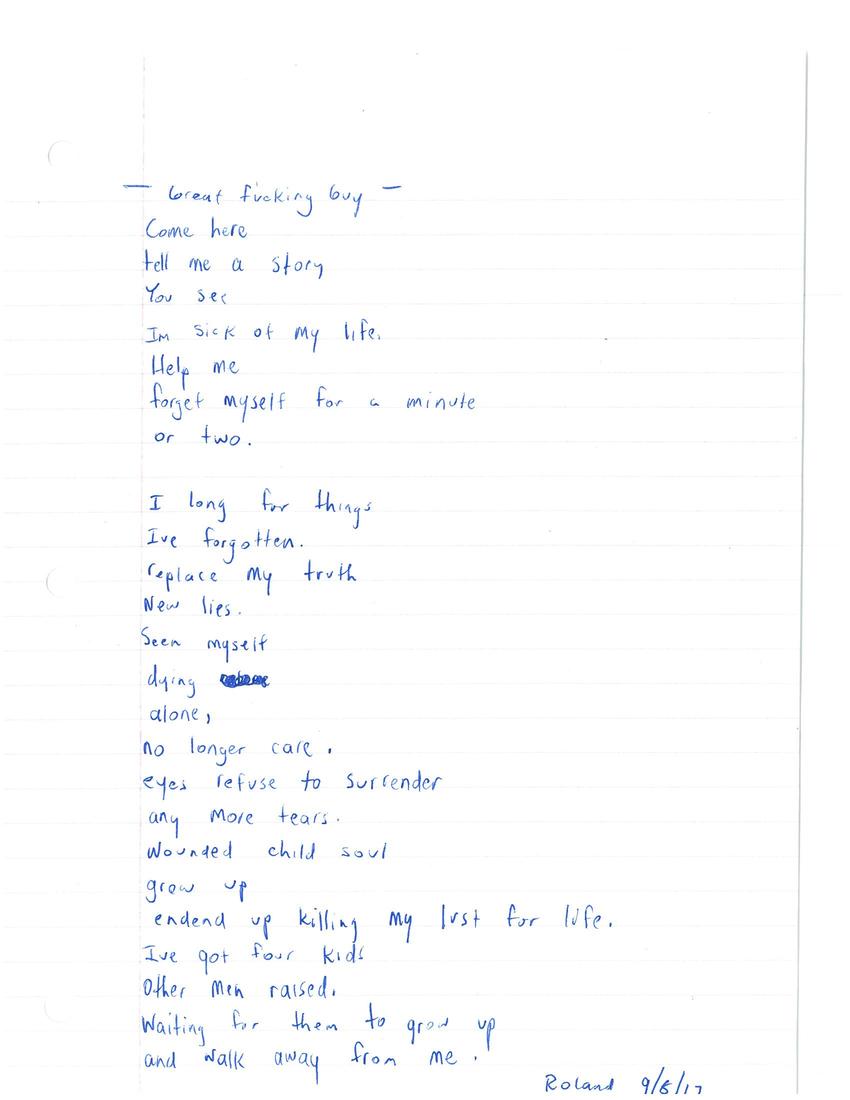 — Great fucking Guy —
Come here
tell me a story
You see
Im sick of my life.
Help me
forget myself for a minute
or two.
I long for things
Ive forgotten.
replace my truth
New lies.
Seen myself
dying
alone,
no longer care.
eyes refuse to surrender
any more tears.
Wounded child soul
grow up
endend up killing my lust for life.
Ive got four kids
Other men raised.
Waiting for them to grow up
and walk away from me.
Roland 9/6/17